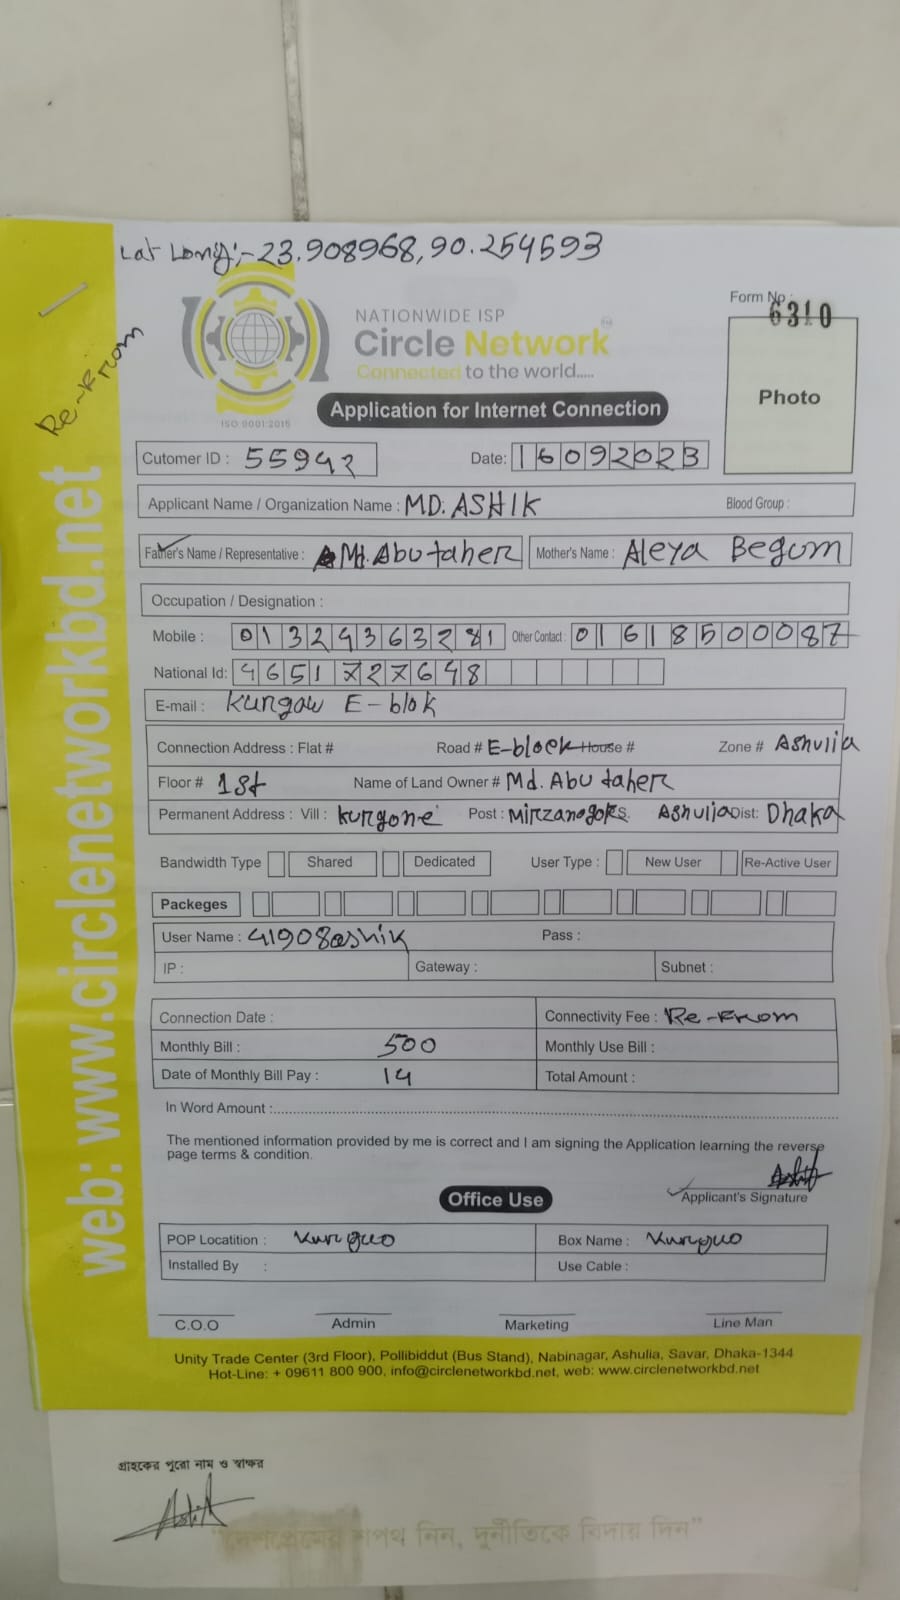 Lat Long:-23.908968,90.254593
Re-From
Form No :
6310
NATIONWIDE ISP
Circle Network
Connected to the world.....
ISO 9001:2015
Photo
Application for Internet Connection
Cutomer ID : 55942 Date: 16092023
Applicant Name / Organization Name : MD. ASHIK Blood Group :
Father's Name / Representative : Md. Abu taher Mother's Name : Aleya Begum
Occupation / Designation :
Mobile : 01324363281 Other Contact : 01618500087
National Id: 4651727648
E-mail : Kungau E-blok
Connection Address : Flat # Road # E-block House # Zone # Ashulia
Floor # 1st Name of Land Owner # Md. Abu taher
Permanent Address : Vill : kurgone Post : Mirzanagor Ashulia Dist: Dhaka
Bandwidth Type Shared Dedicated User Type : New User Re-Active User
Packeges
User Name : 41908ashik Pass :
IP : Gateway : Subnet :
Connection Date : Connectivity Fee : Re-From
Monthly Bill : 500 Monthly Use Bill :
Date of Monthly Bill Pay : 14 Total Amount :
In Word Amount :
The mentioned information provided by me is correct and I am signing the Application learning the reverse
page terms & condition.
Ashik
Office Use Applicant's Signature
POP Locatition : Box Name :
Installed By : Use Cable :
C.O.O Admin Marketing Line Man
Unity Trade Center (3rd Floor), Pollibiddut (Bus Stand), Nabinagar, Ashulia, Savar, Dhaka-1344
Hot-Line: + 09611 800 900, info@circlenetworkbd.net, web: www.circlenetworkbd.net
web: www.circlenetworkbd.net
গ্রাহকের পুরো নাম ও স্বাক্ষর
Ashik
"দেশপ্রেমের শপথ নিন, দুর্নীতিকে বিদায় দিন"